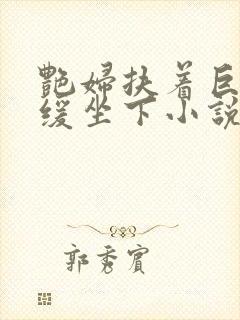 艷婦扶着巨
缓坐下小說
郭秀賓